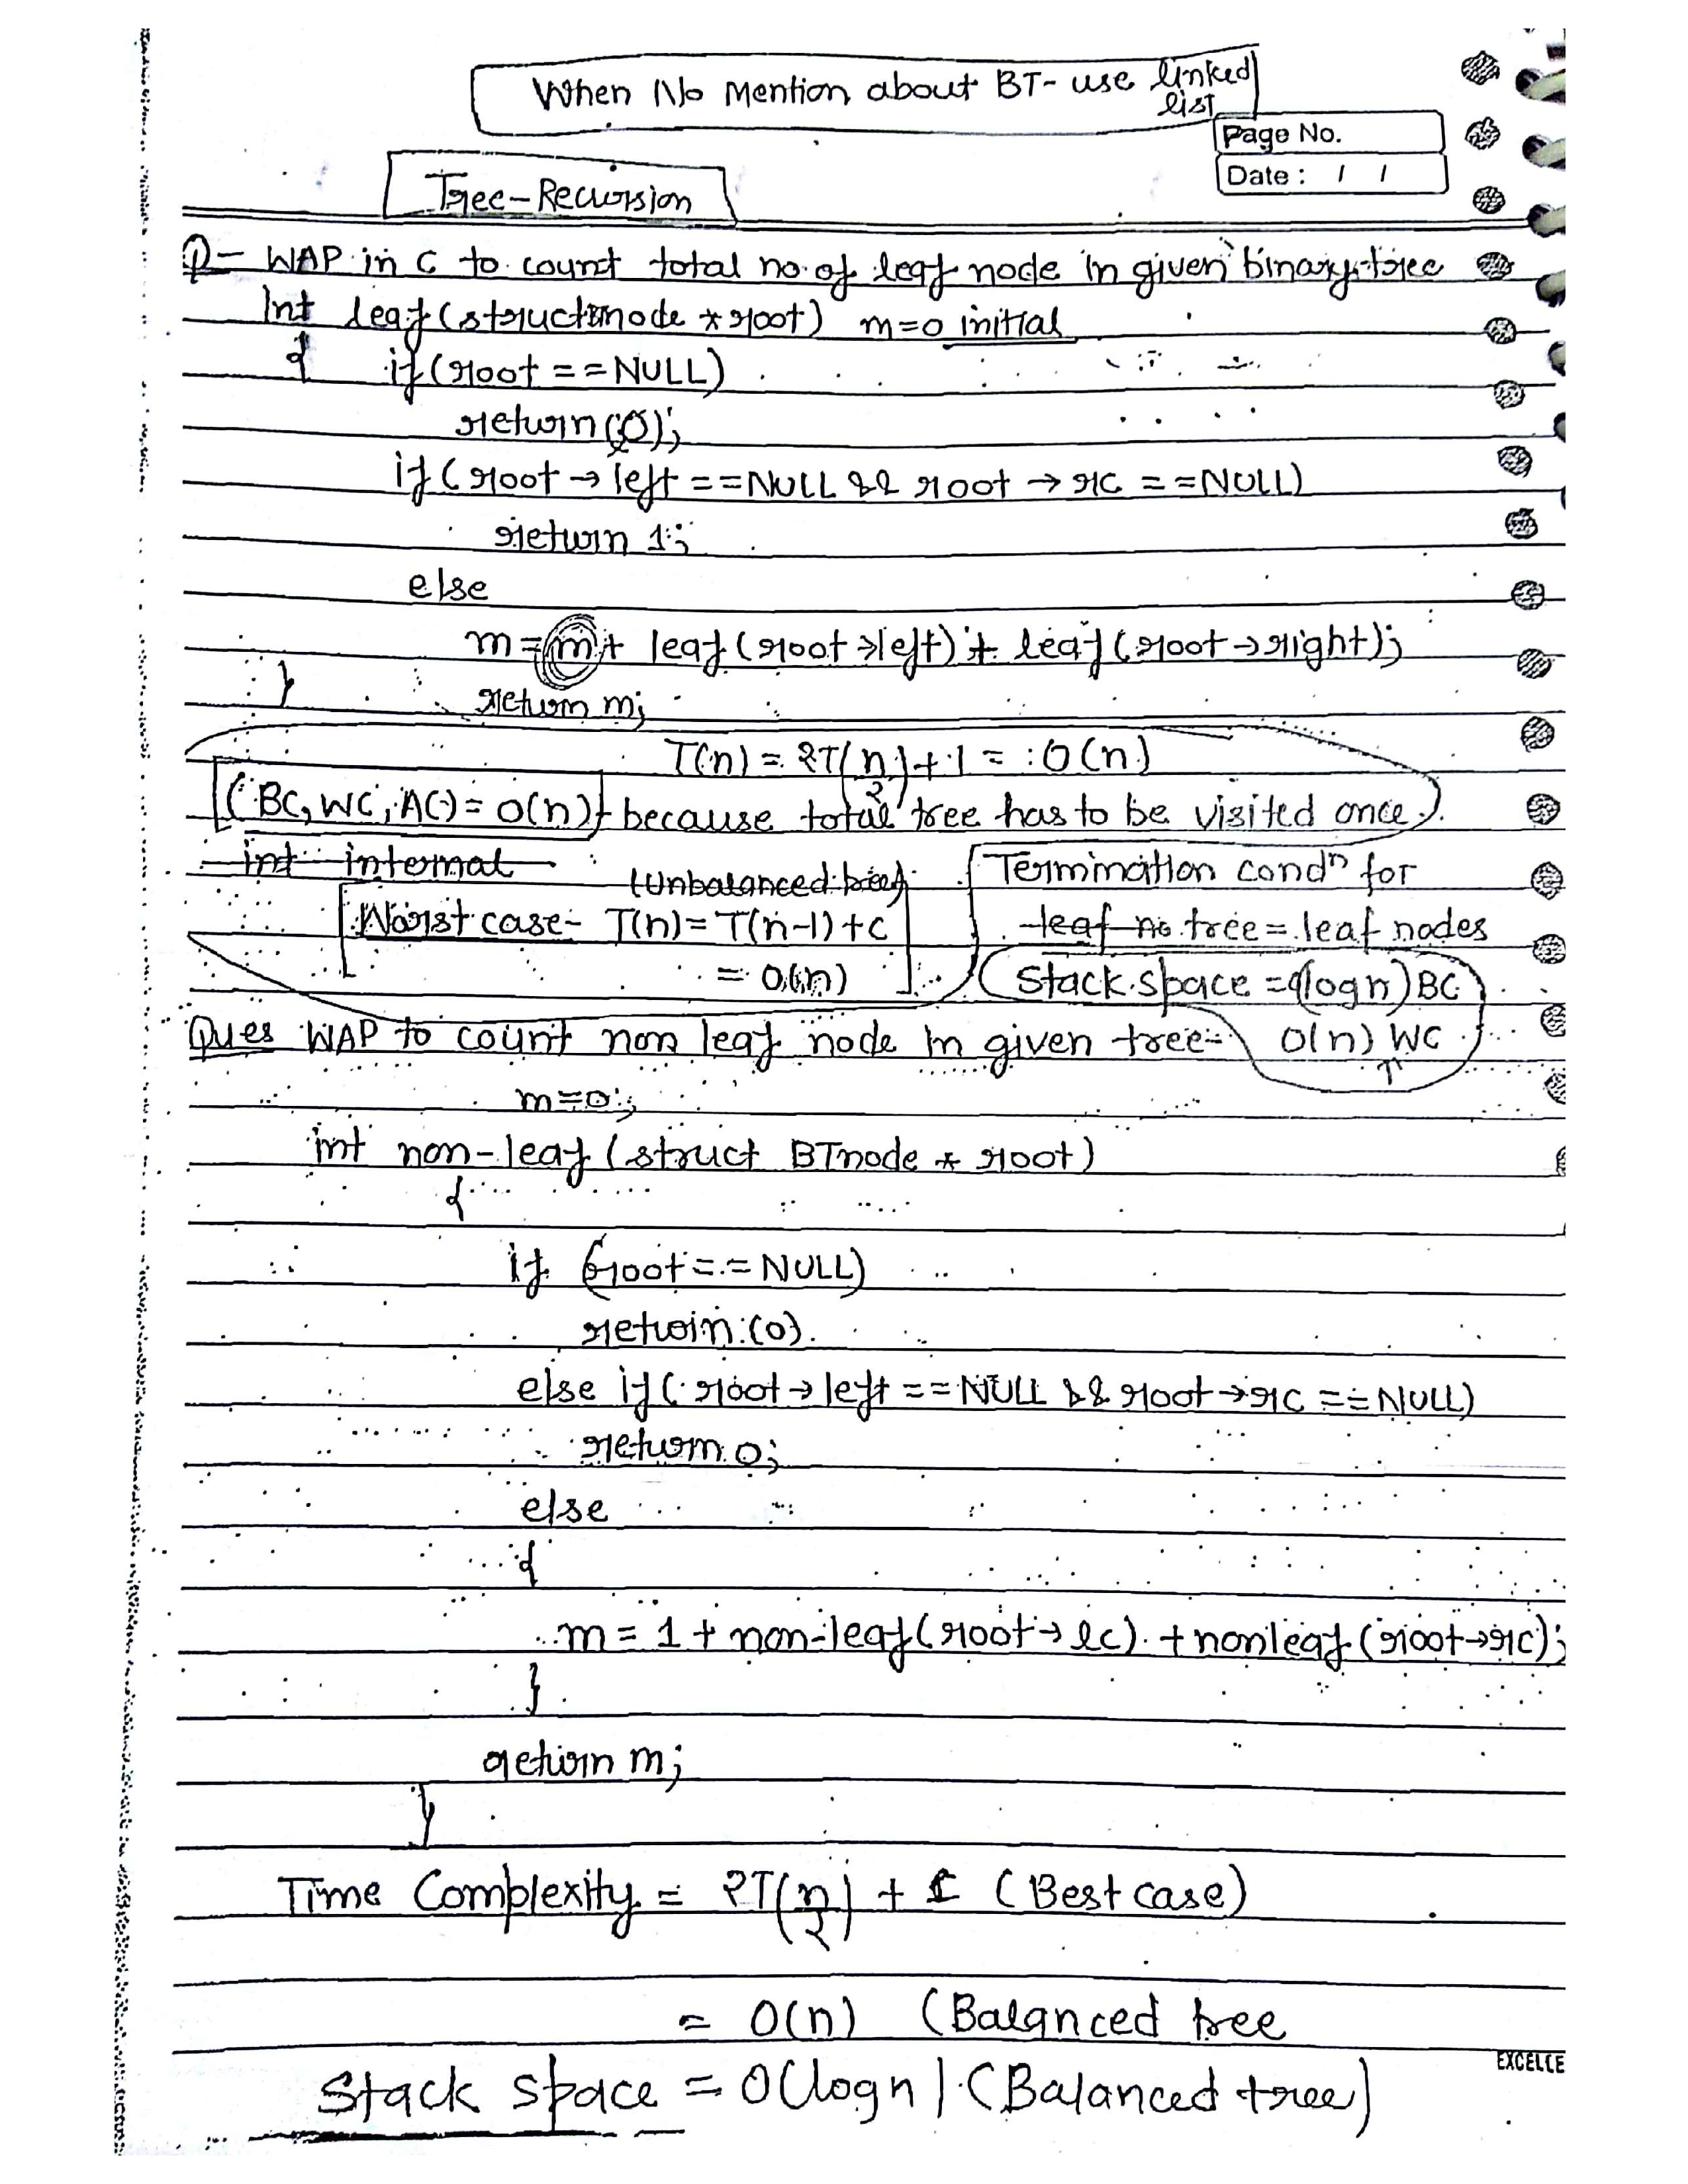 When No Mention about BT- use linked
list
Page No.
Date : / /
Tree-Recursion
Q- WAP in C to count total no. of leaf node in given binary tree
Int leaf (struct node * root) m=0 initial
{ if (root == NULL)
return (0);
if (root → left == NULL && root → rc == NULL)
return 1;
else
m = m + leaf (root → left) + leaf (root → right);
}
return m;
T(n) = 2T(n/2) + 1 = O(n)
(BC, WC, AC) = O(n) because total tree has to be visited once.)
int internal
(Unbalanced tree)
Worst case- T(n) = T(n-1) + c
= O(n)
Termination condn for
leaf no tree = leaf nodes
Stack space = O(logn) BC
O(n) WC
Ques WAP to count non leaf node in given tree-
m=0;
int non-leaf (struct BTnode * root)
{
if (root == NULL)
return (0).
else if (root → left == NULL && root → rc == NULL)
return 0;
else
{
m = 1 + non-leaf (root → lc) + nonleaf (root → rc);
}
return m;
}
Time Complexity = 2T(n/2) + C (Best case)
= O(n) (Balanced tree
EXCELLE
Stack space = O(logn) (Balanced tree)